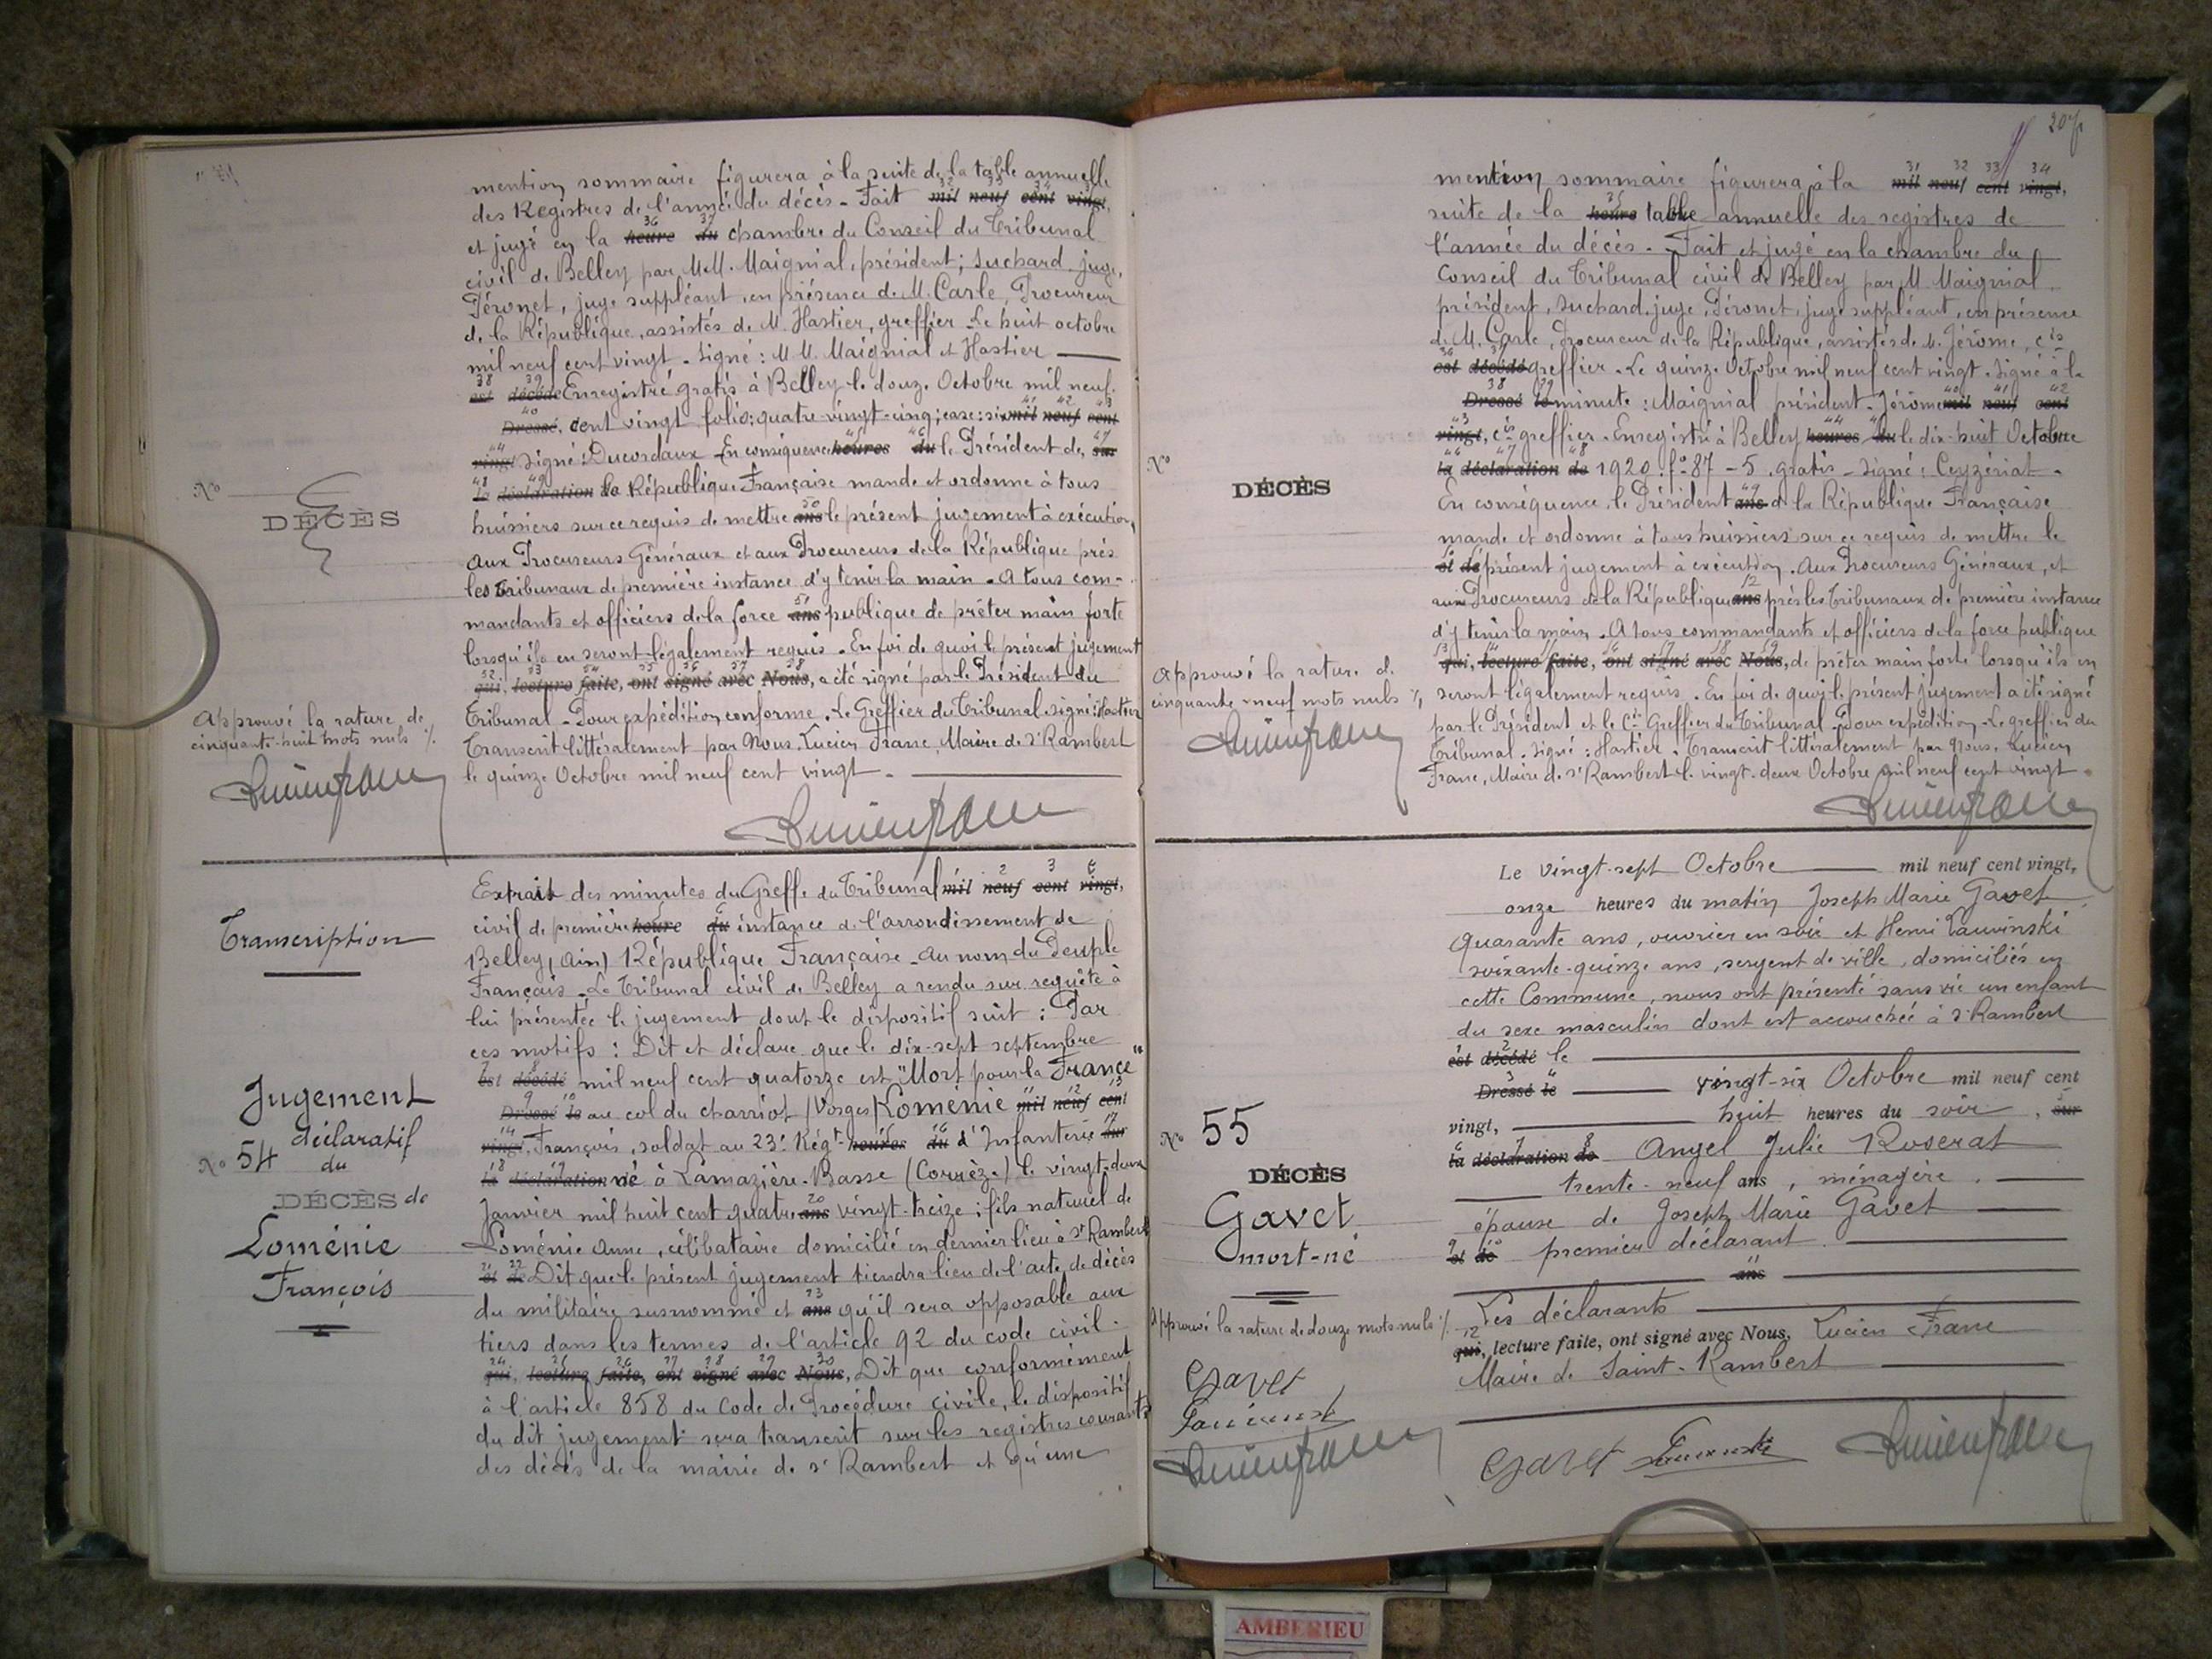 mention sommaire figurera à la suite de la table annuelle
des Registres de l'année du décès - Fait mil neuf cent vingt,
et jugé en la heure du chambre du Conseil du Tribunal
civil de Belley par MM. Maignial, président; Suchard, juge,
Péronet, juge suppléant, en présence de M. Carle, Procureur
de la République, assistés de M. Hastier, greffier - Le huit octobre
mil neuf cent vingt - Signé : MM. Maignial et Hastier
est décédé Enregistré gratis à Belley le douze Octobre mil neuf
Dressé, cent vingt folio: quatre-vingt-cinq; case: six mil neuf cent
vingt Signé: Ducordaux - En conséquence heures du le Président de sur
la déclaration de la République Française mande et ordonne à tous
huissiers sur ce requis de mettre ans le présent jugement à exécution,
aux Procureurs Généraux et aux Procureurs de la République près
les tribunaux de première instance d'y tenir la main - A tous com-
mandants et officiers de la force ans publique de prêter main forte
lorsqu'ils en seront légalement requis - En foi de quoi le présent jugement
qui, lecture faite, ont signé avec Nous, a été signé par le Président du
Tribunal - Pour expédition conforme - Le Greffier du Tribunal signé: Hastier
Transcrit littéralement par Nous, Lucien Franc, Maire de St Rambert
le quinze Octobre mil neuf cent vingt -
No
DÉCÈS
Approuvé la rature de
cinquante-huit mots nuls ./.
Lucien Franc
Lucien Franc
Transcription
Jugement
déclaratif
No 54 du
DÉCÈS de
Loménie
François
Extrait des minutes du Greffe du Tribunal mil neuf cent vingt,
civil de première heure du instance de l'arrondissement de
Belley, (Ain) République Française - Au nom du Peuple
Français - Le Tribunal civil de Belley a rendu sur requête à
lui présentée le jugement dont le dispositif suit : Par
ces motifs : Dit et déclare que le dix-sept septembre
est décédé mil neuf cent quatorze est "Mort pour la France"
Dressé le au col du charriot (Vosges) Loménie mil neuf cent
vingt, François, soldat au 23e Régt heures du d'Infanterie sur
la déclaration né à Lamazière-Basse (Corrèze) le vingt-deux
Janvier mil huit cent quatre ans vingt-treize; fils naturel de
Loménie Anne, célibataire domicilié en dernier lieu à St Rambert
et de Dit que le présent jugement tiendra lieu de l'acte de décès
du militaire susnommé et ans qu'il sera opposable aux
tiers dans les termes de l'article 92 du code civil -
qui, lecture faite, ont signé avec Nous, Dit que conformément
à l'article 858 du Code de Procédure civile, le dispositif
du dit jugement sera transcrit sur les registres courants
des décès de la mairie de St Rambert et qu'une
207
mention sommaire figurera à la mil neuf cent vingt,
suite de la heure table annuelle des registres de
l'année du décès - Fait et jugé en la chambre du
Conseil du Tribunal civil de Belley par M Maignial
président, Suchard, juge, Péronet, juge suppléant, en présence
de M. Carle, Procureur de la République, assistés de M. Jérôme, cis
est décédé greffier - Le quinze Octobre mil neuf cent vingt - Signé à la
Dressé le minute : Maignial président - Jérôme mil neuf cent
vingt, cis greffier - Enregistré à Belley heures du le dix-huit Octobre
la déclaration de 1920 - fo 87 - 5 - gratis - Signé : Ceyzériat -
En conséquence, le Président ans de la République Française
mande et ordonne à tous huissiers sur ce requis de mettre le
et de présent jugement à exécution - Aux Procureurs Généraux, et
aux Procureurs de la République ans près les Tribunaux de première instance
d'y tenir la main - A tous commandants et officiers de la force publique
qui, lecture faite, ont signé avec Nous, de prêter main forte lorsqu'ils en
seront légalement requis - En foi de quoi le présent jugement a été signé
par le Président et le Cis Greffier du Tribunal - Pour expédition - Le greffier du
Tribunal - Signé : Hastier - Transcrit littéralement par Nous, Lucien
Franc, Maire de St Rambert le vingt-deux Octobre mil neuf cent vingt -
No
DÉCÈS
Approuvé la rature de
cinquante neuf mots nuls ./.
Lucien Franc
Lucien Franc
Le vingt-sept Octobre mil neuf cent vingt,
onze heures du matin Joseph Marie Gavet
quarante ans, ouvrier en soie et Henri
soixante-quinze ans, sergent de ville, domiciliés en
cette Commune, nous ont présenté sans vie un enfant
du sexe masculin dont est accouchée à St Rambert
est décédé le
Dressé le vingt-six Octobre mil neuf cent
vingt, huit heures du soir, sur
la déclaration de Angel Julie Roserat
trente-neuf ans, ménagère,
épouse de Joseph Marie Gavet
et de premier déclarant
ans
Les déclarants
qui, lecture faite, ont signé avec Nous, Lucien Franc
Maire de Saint-Rambert
No 55
DÉCÈS
Gavet
mort-né
Approuvé la rature de douze mots nuls ./.
Gavet
Lucien Franc
Gavet
Lucien Franc
AMBERIEU